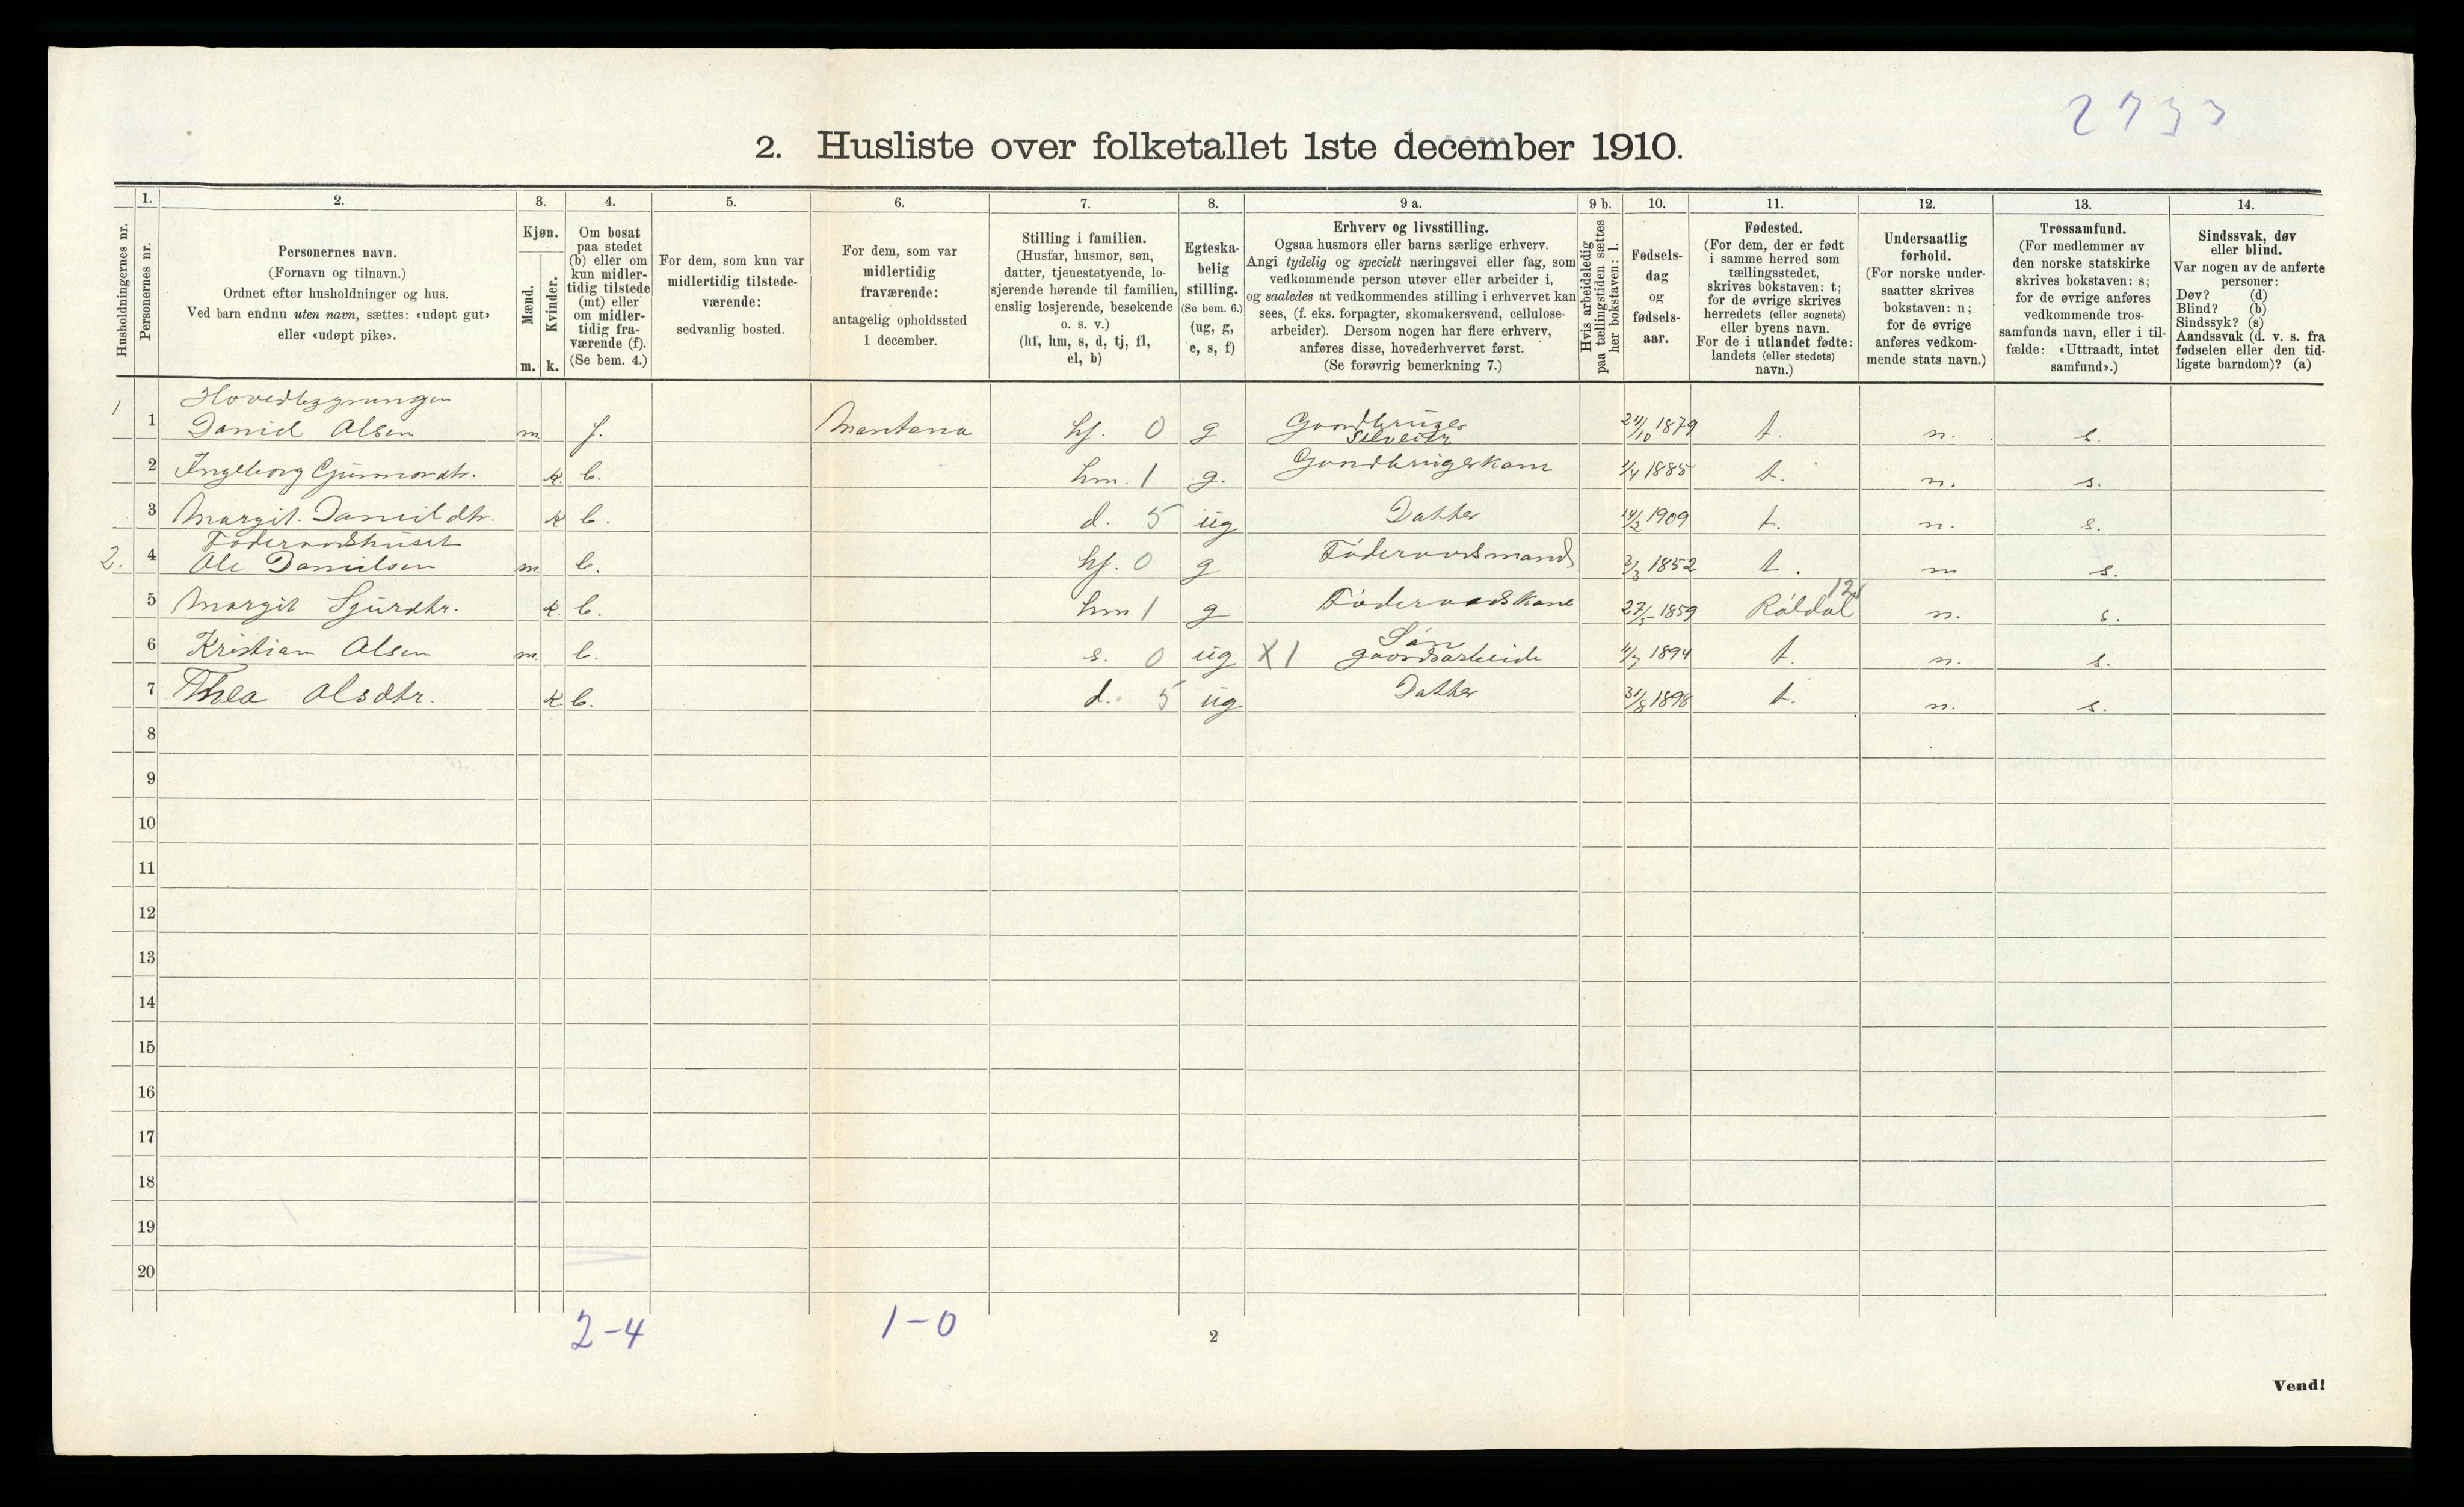 2733
2. Husliste over folketallet 1ste december 1910.
Husholdningernes nr.
1.
Personernes nr.
2.
Personernes navn.
(Fornavn og tilnavn.)
Ordnet efter husholdninger og hus.
Ved barn endnu uten navn, sættes: «udøpt gut»
eller «udøpt pike».
3.
Kjøn.
Mænd.
Kvinder.
m. k.
4.
Om bosat
paa stedet
(b) eller om
kun midler-
tidig tilstede
(mt) eller
om midler-
tidig fra-
værende (f).
(Se bem. 4.)
5.
For dem, som kun var
midlertidig tilstede-
værende:
sedvanlig bosted.
6.
For dem, som var
midlertidig
fraværende:
antagelig opholdssted
1 december.
7.
Stilling i familien.
(Husfar, husmor, søn,
datter, tjenestetyende, lo-
sjerende hørende til familien,
enslig losjerende, besøkende
o. s. v.)
(hf, hm, s, d, tj, fl,
el, b)
8.
Egteska-
belig
stilling.
(Se bem. 6.)
(ug, g,
e, s, f)
9 a.
Erhverv og livsstilling.
Ogsaa husmors eller barns særlige erhverv.
Angi tydelig og specielt næringsvei eller fag, som
vedkommende person utøver eller arbeider i,
og saaledes at vedkommendes stilling i erhvervet kan
sees, (f. eks. forpagter, skomakersvend, cellulose-
arbeider). Dersom nogen har flere erhverv,
anføres disse, hovederhvervet først.
(Se forøvrig bemerkning 7.)
9 b.
Hvis arbeidsledig
paa tællingstiden sættes
her bokstaven: l.
10.
Fødsels-
dag
og
fødsels-
aar.
11.
Fødested.
(For dem, der er født
i samme herred som
tællingsstedet,
skrives bokstaven: t;
for de øvrige skrives
herredets (eller sognets)
eller byens navn.
For de i utlandet fødte:
landets (eller stedets)
navn.)
12.
Undersaatlig
forhold.
(For norske under-
saatter skrives
bokstaven: n;
for de øvrige
anføres vedkom-
mende stats navn.)
13.
Trossamfund.
(For medlemmer av
den norske statskirke
skrives bokstaven: s;
for de øvrige anføres
vedkommende tros-
samfunds navn, eller i til-
fælde: «Uttraadt, intet
samfund».)
14.
Sindssvak, døv
eller blind.
Var nogen av de anførte
personer:
Døv? (d)
Blind? (b)
Sindssyk? (s)
Aandssvak (d. v. s. fra
fødselen eller den tid-
ligste barndom)? (a)
Hovedbygningen
1 1 Daniel Olsen m. f. Montana hf. 0 g Gaardbruger Selveier 24/10 1879 t. n. s.
2 Ingeborg Gunnardtr. k. b. hm. 1 g. Gaardbrugerkone 1/4 1885 t. n. s.
3 Margit Danieldtr. k b. d. 5 ug Datter 14/2 1909 t. n. s.
Föderaadshuset
2. 4 Ole Danielsen m. b. hf. 0 g Föderaadsmand 3/3 1852 t. n s.
5 Margit Sjurdtr. k. b. hm 1 g Föderaadskone 27/5 1859 Röldal 12 n. s.
6 Kristian Olsen m. b. s. 0 ug X1 Sön gaardsarbeide 4/7 1894 t. n. s.
7 Thea Olsdtr. k. b. d. 5 ug Datter 31/8 1898 t. n. s.
8
9
10
11
12
13
14
15
16
17
18
19
20
2-4 1-0
2
Vend!